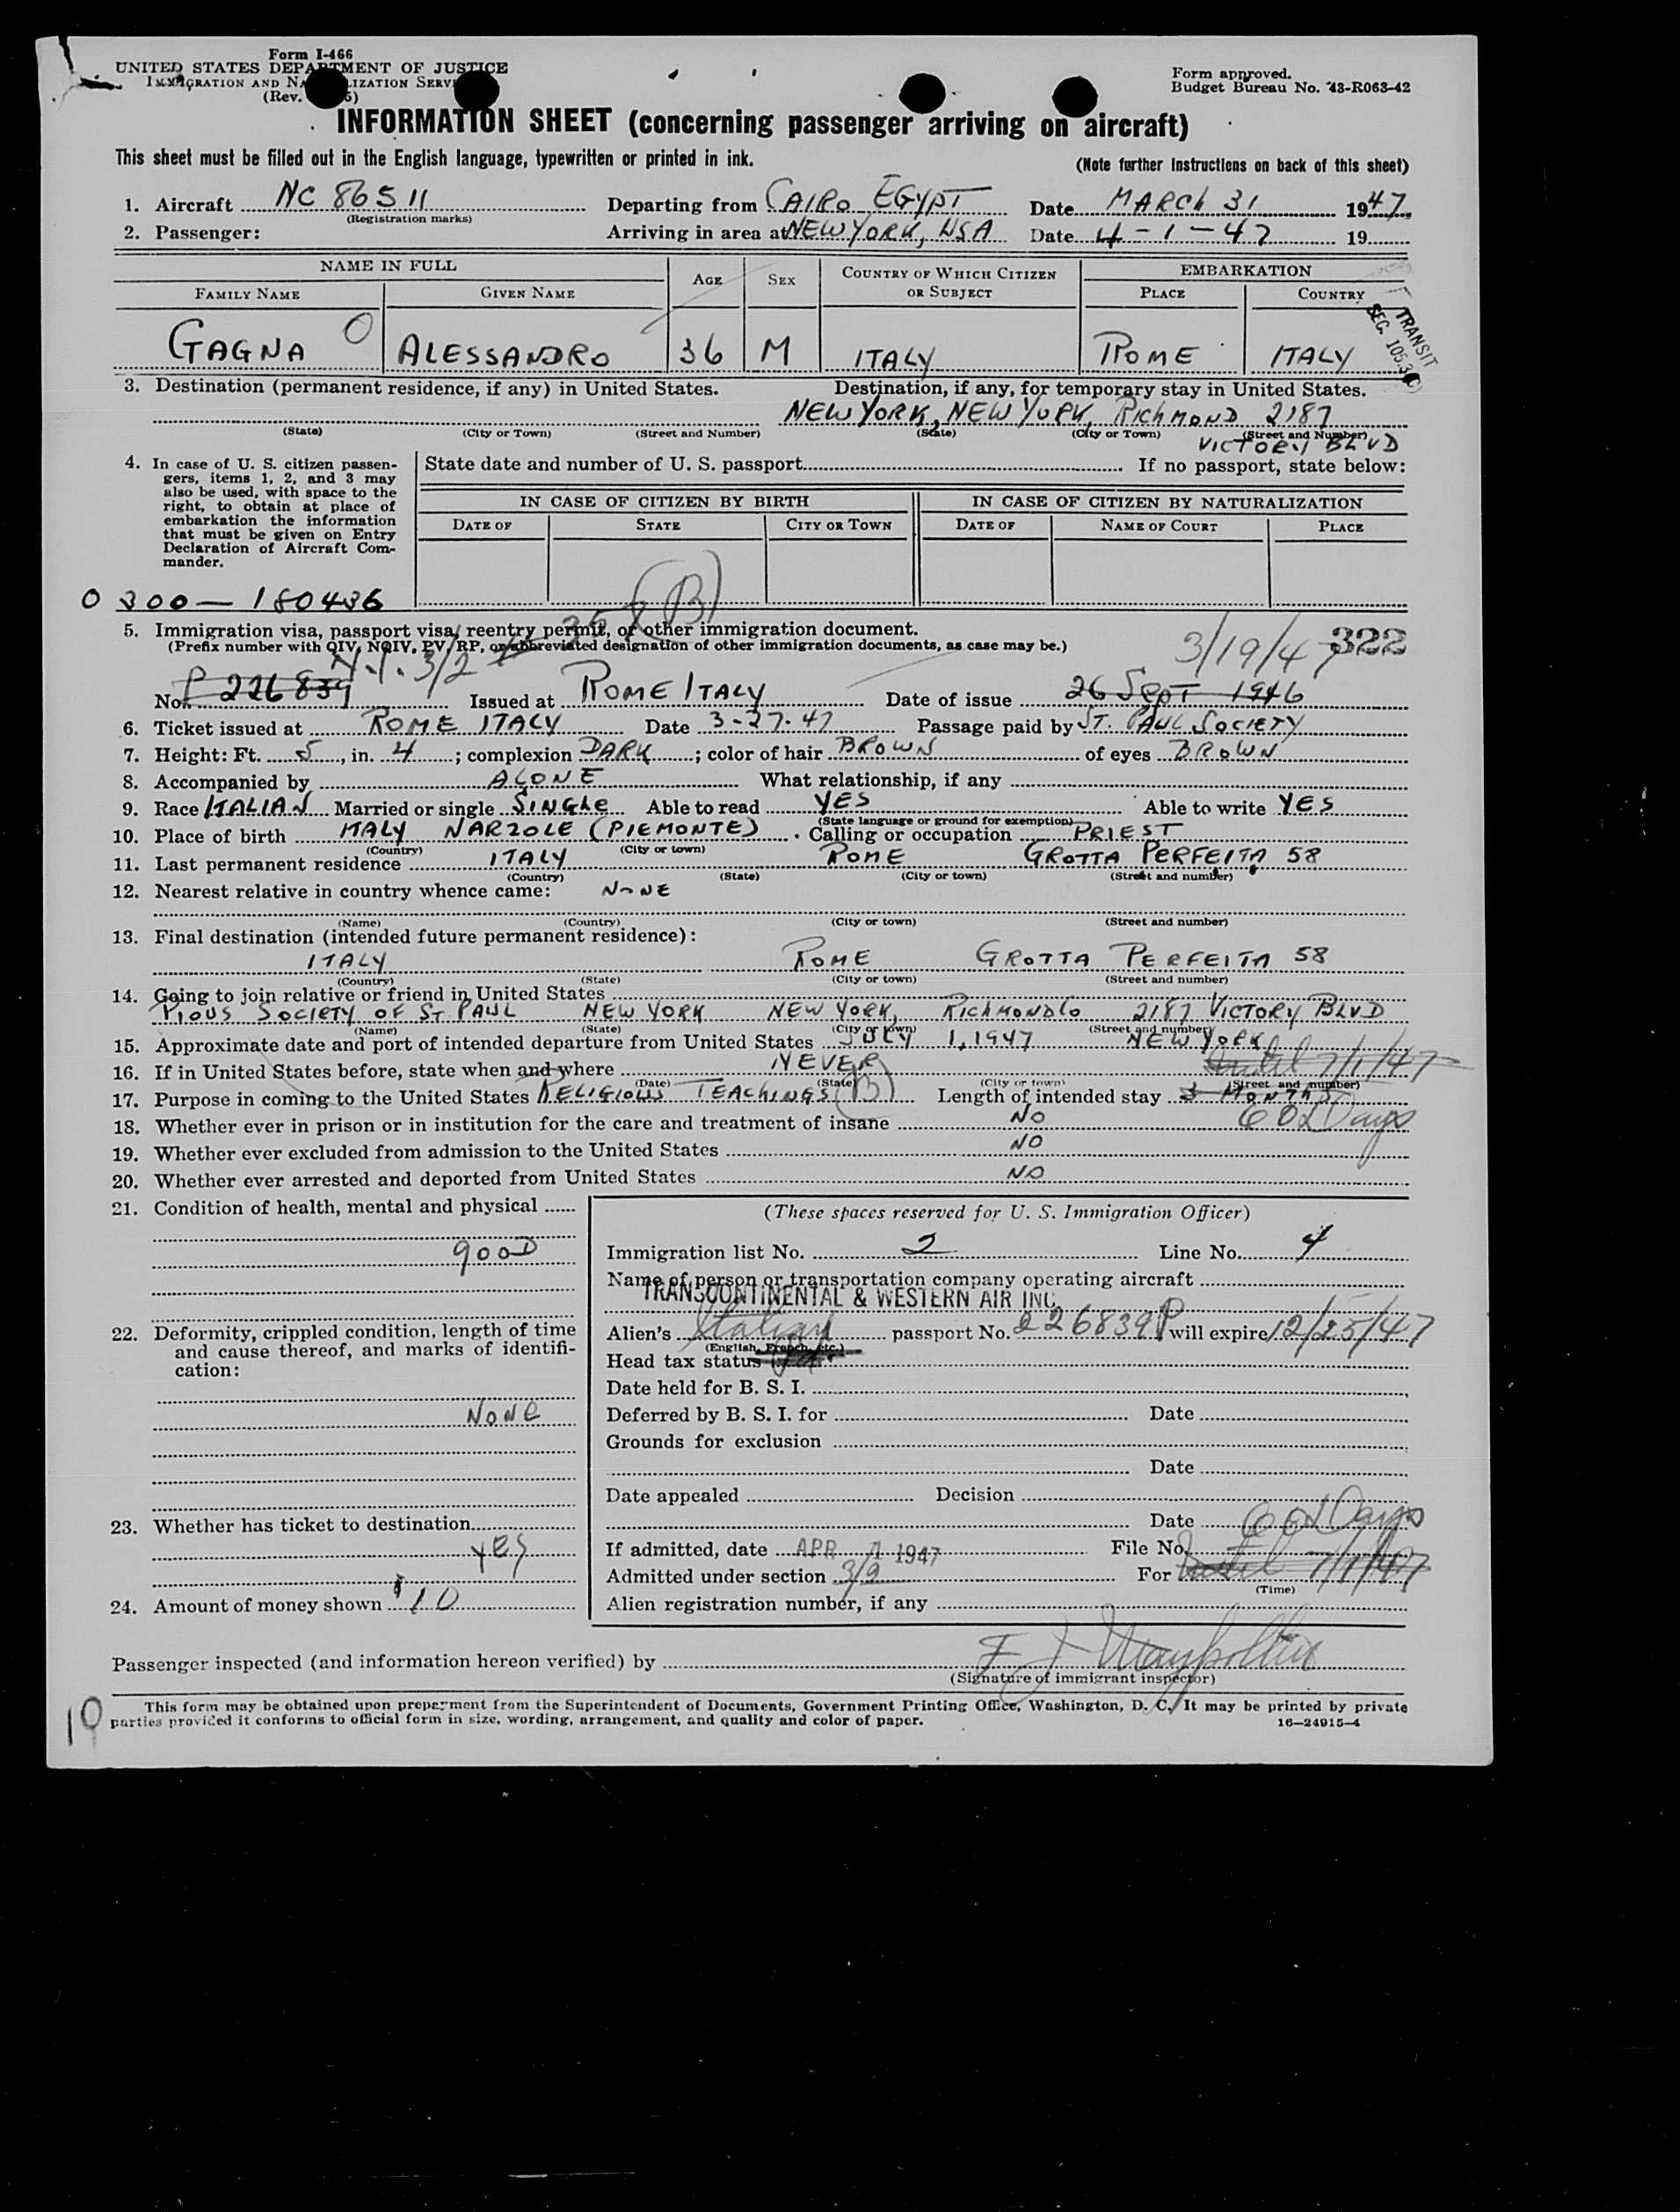 Form I-466
UNITED STATES DEPARTMENT OF JUSTICE
IMMIGRATION AND NATURALIZATION SERVICE
(Rev.
Form approved.
Budget Bureau No. 43-R063-42
INFORMATION SHEET (concerning passenger arriving on aircraft)
This sheet must be filled out in the English language, typewritten or printed in ink. (Note further instructions on back of this sheet)
1. Aircraft NC 86511 Departing from CAIRO EGYPT Date MARCH 31 1947
(Registration marks)
2. Passenger: Arriving in area at NEW YORK, USA Date 4-1-47 19
NAME IN FULL AGE SEX COUNTRY OF WHICH CITIZEN OR SUBJECT EMBARKATION
FAMILY NAME GIVEN NAME PLACE COUNTRY
TRANSIT
SEC. 105.3
GAGNA O ALESSANDRO 36 M ITALY ROME ITALY
3. Destination (permanent residence, if any) in United States. Destination, if any, for temporary stay in United States.
NEW YORK, NEW YORK, RICHMOND 2187
(State) (City or Town) (Street and Number) (State) (City or Town) (Street and Number)
VICTORY BLVD
4. In case of U. S. citizen passengers, items 1, 2, and 3 may also be used, with space to the right, to obtain at place of embarkation the information that must be given on Entry Declaration of Aircraft Commander.
State date and number of U. S. passport If no passport, state below:
IN CASE OF CITIZEN BY BIRTH IN CASE OF CITIZEN BY NATURALIZATION
DATE OF STATE CITY OR TOWN DATE OF NAME OF COURT PLACE
0300-180436
(B)
5. Immigration visa, passport visa, reentry permit, or other immigration document.
(Prefix number with QIV, NQIV, PV, RP, or abbreviated designation of other immigration documents, as case may be.)
3/19/47 322
No. P 226839 Issued at ROME ITALY Date of issue 26 SEPT 1946
6. Ticket issued at ROME ITALY Date 3-27-47 Passage paid by ST. PAUL SOCIETY
7. Height: Ft. 5, in. 4; complexion DARK; color of hair BROWN of eyes BROWN
8. Accompanied by ALONE What relationship, if any
9. Race ITALIAN Married or single SINGLE Able to read YES Able to write YES
(State language or ground for exemption)
10. Place of birth ITALY NARZOLE (PIEMONTE). Calling or occupation PRIEST
(Country) (City or town)
11. Last permanent residence ITALY ROME GROTTA PERFEITA 58
(Country) (State) (City or town) (Street and number)
12. Nearest relative in country whence came: NONE
(Name) (Country) (City or town) (Street and number)
13. Final destination (intended future permanent residence):
ITALY ROME GROTTA PERFEITA 58
(Country) (State) (City or town) (Street and number)
14. Going to join relative or friend in United States
PIOUS SOCIETY OF ST PAUL NEW YORK NEW YORK, RICHMOND CO 2187 VICTORY BLVD
(Name) (State) (City or town) (Street and number)
15. Approximate date and port of intended departure from United States JULY 1, 1947 NEW YORK
16. If in United States before, state when and where NEVER
until 7/1/47
(Date) (State) (City or town) (Street and number)
17. Purpose in coming to the United States RELIGIOUS TEACHINGS (B) Length of intended stay 3 MONTHS
18. Whether ever in prison or in institution for the care and treatment of insane NO
Days
19. Whether ever excluded from admission to the United States NO
20. Whether ever arrested and deported from United States NO
21. Condition of health, mental and physical
good
22. Deformity, crippled condition, length of time and cause thereof, and marks of identification:
NONE
23. Whether has ticket to destination
YES
24. Amount of money shown $10
(These spaces reserved for U. S. Immigration Officer)
Immigration list No. 2 Line No. 4
Name of person or transportation company operating aircraft
TRANSCONTINENTAL & WESTERN AIR INC.
Alien's Italian passport No. 226839P will expire 12/25/47
(English, French, etc.)
Head tax status
Date held for B. S. I.
Deferred by B. S. I. for Date
Grounds for exclusion
Date
Date appealed Decision
Date
Days
If admitted, date APR 1 1947 File No.
Admitted under section 3/9 For until 7/1/47
(Time)
Alien registration number, if any
Passenger inspected (and information hereon verified) by
(Signature of immigrant inspector)
This form may be obtained upon prepayment from the Superintendent of Documents, Government Printing Office, Washington, D. C. It may be printed by private
parties provided it conforms to official form in size, wording, arrangement, and quality and color of paper. 16—24915-4
19